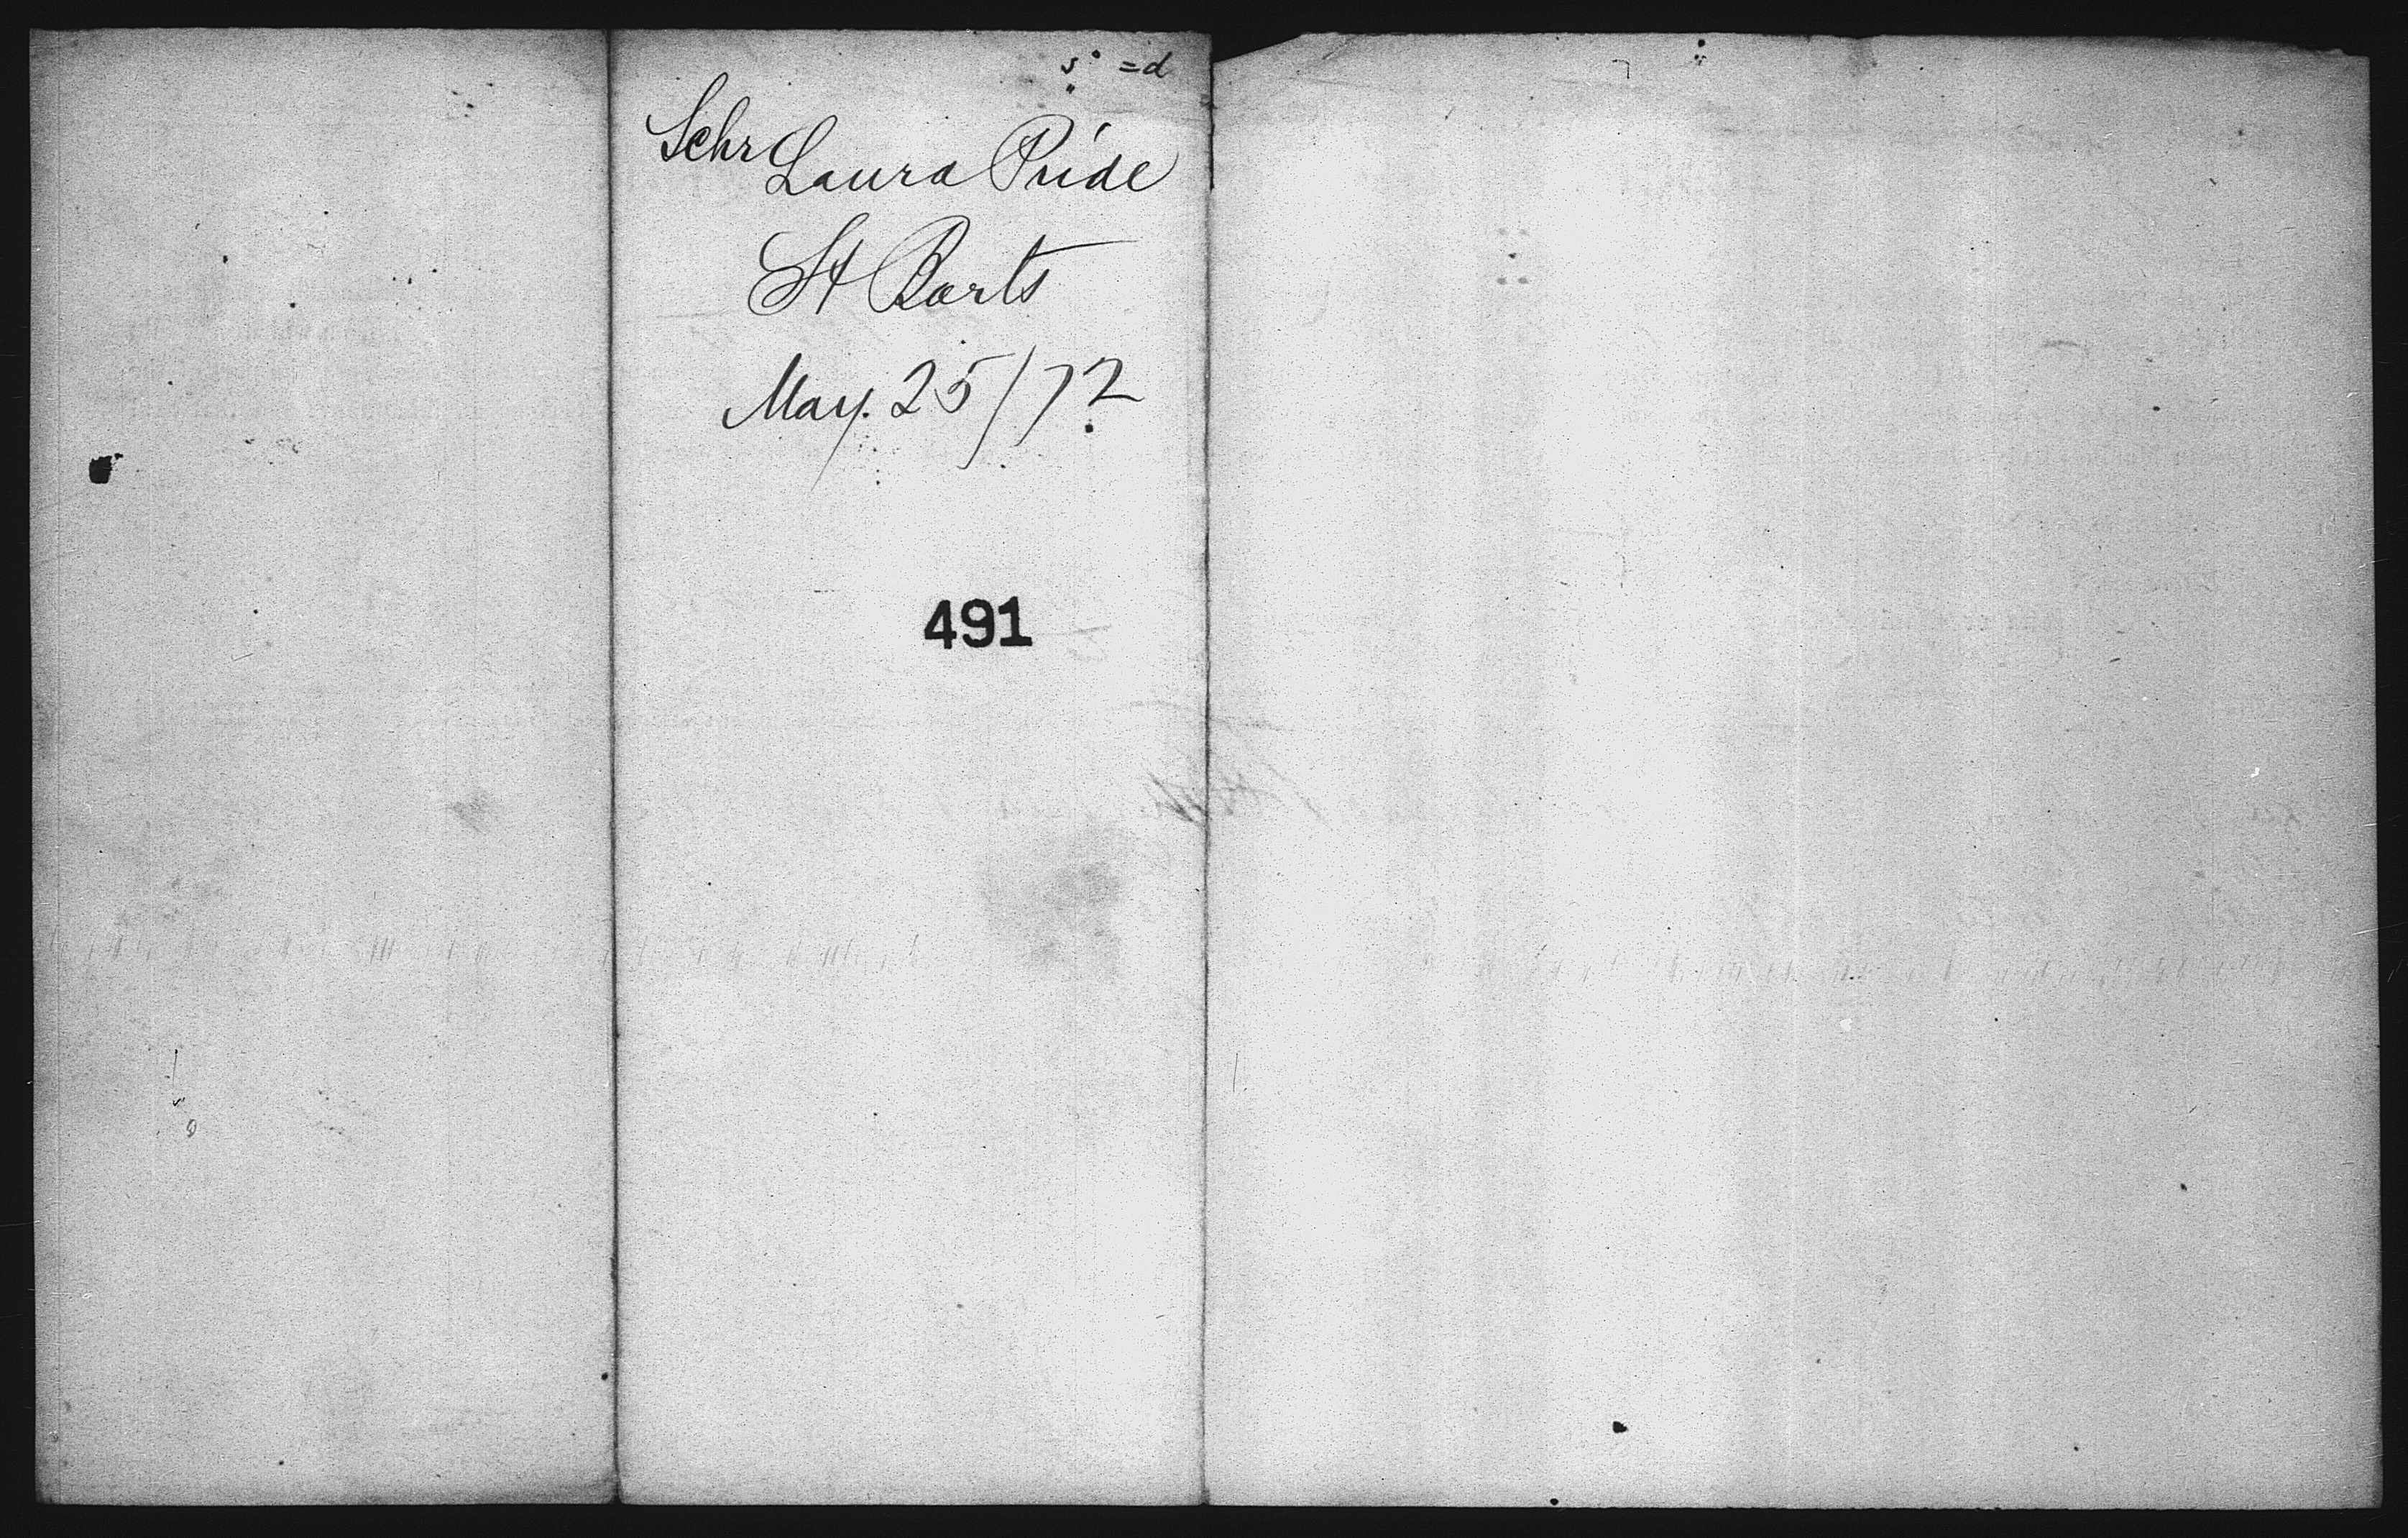 Schr Laura Pride
St Barts
May. 25/72
491